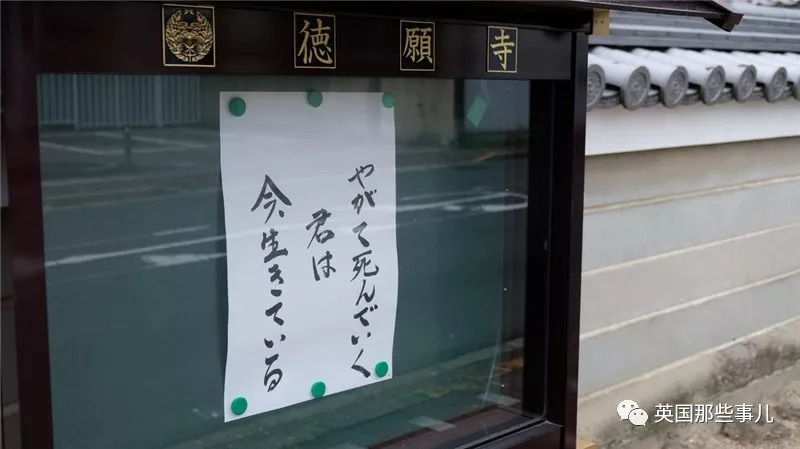 徳願寺
やがて死んでいく
君は
今、生きている
英国那些事儿